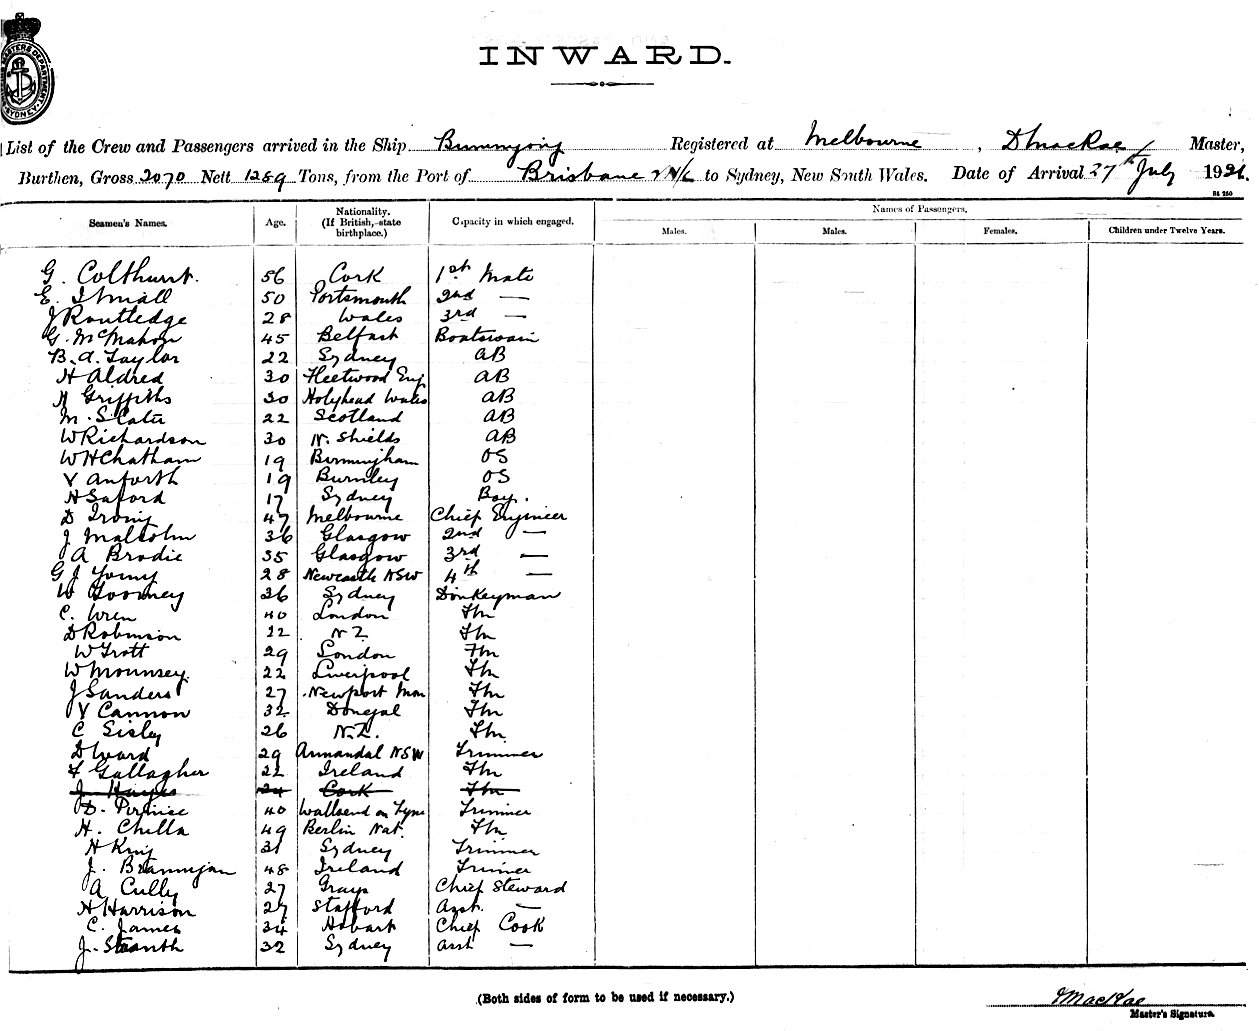 INWARD.
List of the Crew and Passengers arrived in the Ship Registered at Melbourne, D MacRae Master,
Burthen, Gross 2070 Nett 1289 Tons, from the Port of Brisbane to Sydney, New South Wales. Date of Arrival 27th July 1921.
Seamen's Names. Age. Nationality. (If British, state birthplace.) Capacity in which engaged. Names of Passengers.
Males. Males. Females. Children under Twelve Years.
G. Colthurst. 56 Cork 1st Mate
E. 50 Portsmouth 2nd —
J Routledge 28 Wales 3rd —
G. McMahon 45 Belfast Boatswain
B. A. Taylor 22 Sydney AB
H Aldred 30 Fleetwood Eng AB
H Griffiths 30 Holyhead Wales AB
M. Slater 22 Scotland AB
W Richardson 30 N. Shields AB
W H Chatham 19 Birmingham OS
V Anforth 19 Burnley OS
H Saford 17 Sydney Boy.
D Irving 47 Melbourne Chief Engineer
J Malcolm 36 Glasgow 2nd —
A Brodie 35 Glasgow 3rd —
G J Young 28 Newcastle NSW 4th —
W 36 Sydney Donkeyman
C. Wren 40 London Fm
D Robinson 22 N Z Fm
W Trott 29 London Fm
W Mounsey. 22 Liverpool Fm
J Sanders 27 Newport Mon Fm
V Cannon 32 Donegal Fm
C Sisley 26 N.Z. Fm
D Ward 29 Annandal NSW Trimmer
F Gallagher 22 Ireland Fm
J Hayes 24 Cork Fm
D. 40 Wallsend on Tyne Trimmer
H. Chilla 49 Berlin Nat. Fm
H King 31 Sydney Trimmer
J. Brannigan 48 Ireland Trimer
A Cully 27 Grays Chief Steward
H Harrison 27 Stafford Asst. —
C. James 34 Hobart Chief Cook
J. 32 Sydney Asst —
(Both sides of form to be used if necessary.)
D MacRae
Master's Signature.